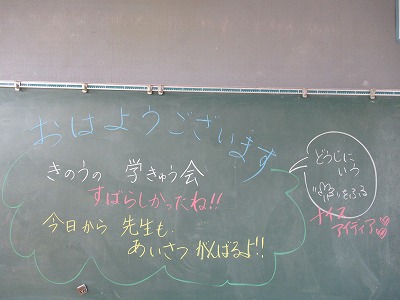 おはようございます
きのうの 学きゅう会
すばらしかったね!!
今日から 先生も
あいさつ がんばるよ!!
どうじに
いう
をふる
ナイス
アイディア